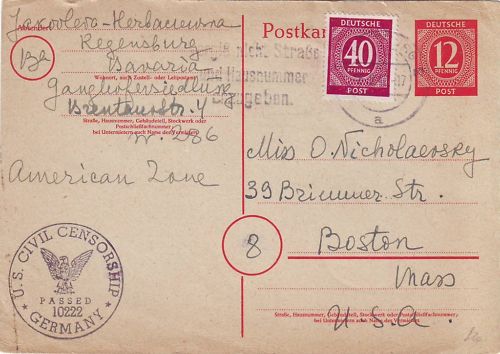 Absender:
Jakovleva-Herbanewna
13a
Regensburg
Bavaria
Wohnort, auch Zustell- oder Leitpostamt
Ganghofersiedlung
Brentanostr. 4
Straße, Hausnummer, Gebäudeteil, Stockwerk oder
Postschließfachnummer;
bei Untermietern auch Name des Vermieters
W. 286
American Zone
U.S. CIVIL CENSORSHIP
PASSED
10222
GERMANY
Postkarte
nicht Straße
und Hausnummer
anzugeben.
a
DEUTSCHE
40
PFENNIG
POST
DEUTSCHE
12
PFENNIG
POST
Miss O. Nicholaevsky
39 Brimmer Str.
8
Boston
Mass
Straße, Hausnummer, Gebäudeteil, Stockwerk oder Postschließfachnummer;
bei Untermietern auch Name des Vermieters
U.S.A.